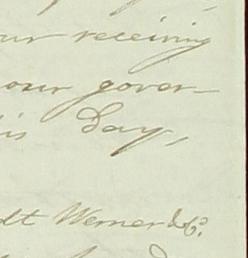 our receiving
our gover-
is Day,
dt Werner & Co.